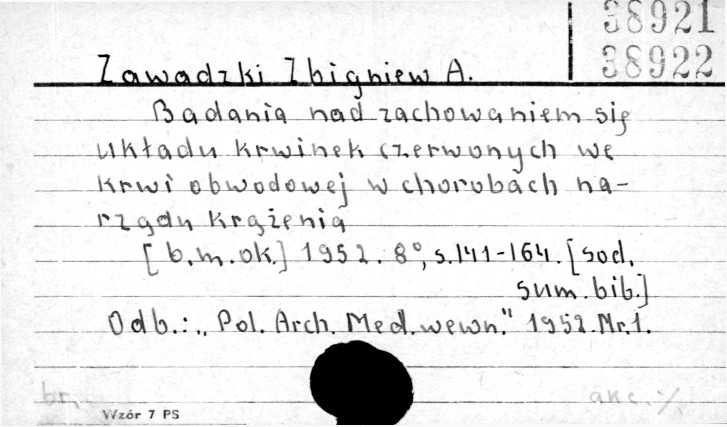 38921
38922
Zawadzki Zbigniew A.
Badania nad zachowaniem się
układu krwinek czerwonych we
krwi obwodowej w chorobach na-
rządu krążenia
[b.m.ok.] 1952. 8°, s.141-164. [sod.
sum. bib.]
Odb.: „Pol. Arch. Med. wewn." 1952. Nr. 1.
br.
akc. %
Wzór 7 PS